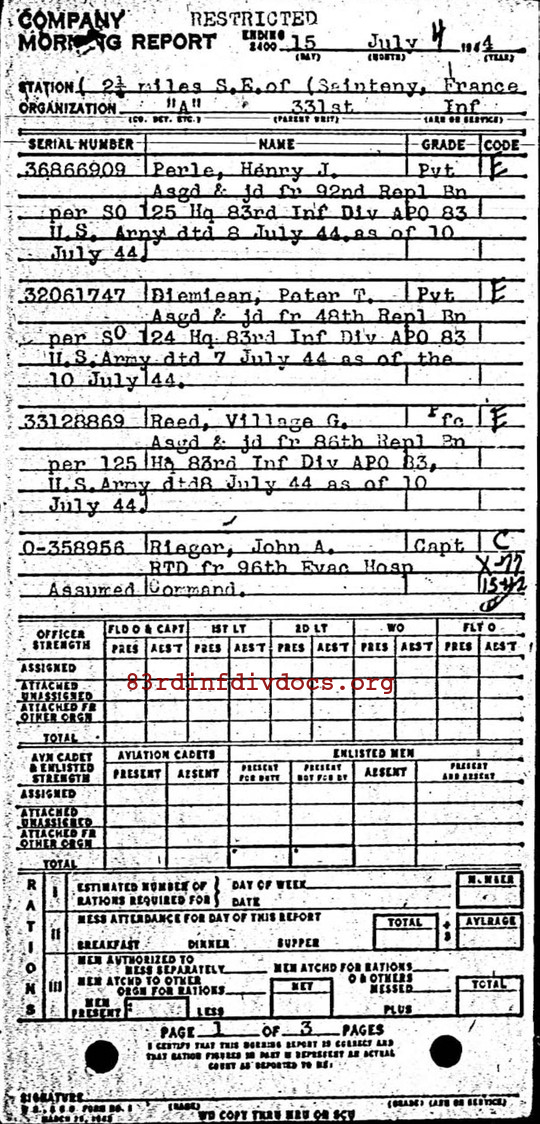 COMPANY RESTRICTED
MORNING REPORT ENDING 2400 15 July 4 1944
(DAY) (MONTH) (YEAR)
STATION ( 2½ miles S.E.of (Sainteny, France
ORGANIZATION "A" 331st Inf
(CO. DET. ETC.) (PARENT UNIT) (ARM OR SERVICE)
SERIAL NUMBER NAME GRADE CODE
36866909 Perle, Henry J. Pvt E
Asgd & jd fr 92nd Repl Bn
per SO 125 Hq 83rd Inf Div APO 83
U.S. Army dtd 8 July 44.as of 10
July 44.
32061747 Diemiean, Peter T. Pvt E
Asgd & jd fr 48th Repl Bn
per SO 124 Hq 83rd Inf Div APO 83
U.S.Army dtd 7 July 44 as of the
10 July 44.
33128869 Reed, Village G. fc E
Asgd & jd fr 86th Repl Bn
per 125 Hq 83rd Inf Div APO 83,
U.S.Army dtd8 July 44 as of 10
July 44.
O-358956 Rieger, John A. Capt C
RTD fr 96th Evac Hosp
Assumed Command.
OFFICER STRENGTH FLD O & CAPT 1ST LT 2D LT WO FLT O
PRES ABS'T PRES ABS'T PRES ABS'T PRES ABS'T PRES ABS'T
ASSIGNED
ATTACHED UNASSIGNED
83rdinfdivdocs.org
ATTACHED FR OTHER ORGN
TOTAL
AVN CADET & ENLISTED STRENGTH AVIATION CADETS ENLISTED MEN
PRESENT ABSENT PRESENT FOR DUTY PRESENT NOT FOR DY ABSENT PRESENT AND ABSENT
ASSIGNED
ATTACHED UNASSIGNED
ATTACHED FR OTHER ORGN
TOTAL
RATIONS
I ESTIMATED NUMBER OF RATIONS REQUIRED FOR DAY OF WEEK DATE NUMBER
II MESS ATTENDANCE FOR DAY OF THIS REPORT TOTAL ÷ 3 AVERAGE
BREAKFAST DINNER SUPPER
III MEN AUTHORIZED TO MESS SEPARATELY MEN ATCHD FOR RATIONS
MEN ATCHD TO OTHER ORGN FOR RATIONS NET O & OTHERS MESSED TOTAL
MEN PRESENT LESS PLUS
PAGE 1 OF 3 PAGES
I CERTIFY THAT THIS MORNING REPORT IS CORRECT AND
THAT RATION FIGURES IN PART II REPRESENT AN ACTUAL
COUNT AS REPORTED TO ME:
SIGNATURE
W.D., A.G.O. FORM NO. 1 (NAME) (GRADE) (ARM OR SERVICE)
MARCH 15, 1943 WD COPY THRU MRU OR SCU